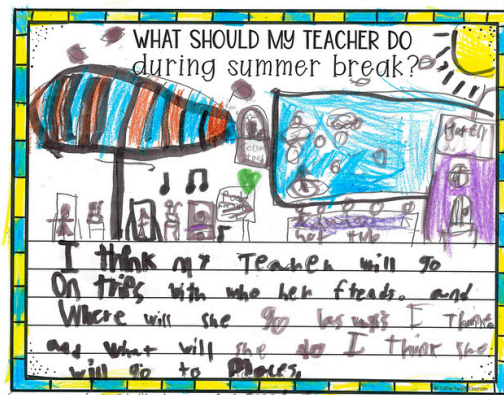 WHAT SHOULD MY TEACHER DO
during summer break?
Hotell
hot tub
I think my Teacher will go
On trips with who her ftends. and
Where will she go las vags I Think
and what will she do I think she
will go to Places.